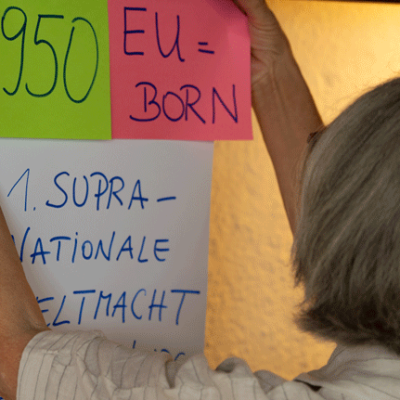 950
EU =
BORN
1. SUPRA-
NATIONALE
ELTMACHT